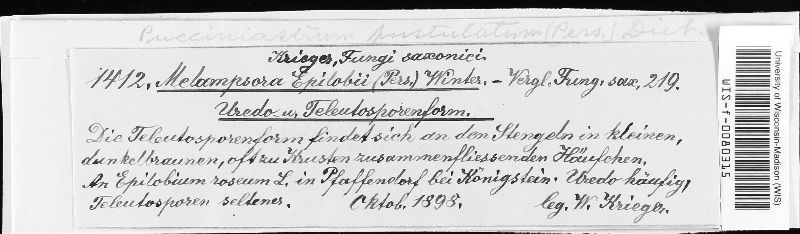 Pucciniastrum pustulatum (Pers.) Diet.
Krieger, Fungi saxonici.
1412. Melampsora Epilobii (Pers.) Winter. – Vergl. Fung. sax. 219.
Uredo- u. Teleutosporenform.
Die Teleutosporenform findet sich an den Stengeln in kleinen,
dunkelbraunen, oft zu Krusten zusammenfliessenden Häufchen.
An Epilobium roseum L. in Pfaffendorf bei Königstein. Uredo häufig,
Teleutosporen seltener. Oktob. 1898. leg. W. Krieger.
University of Wisconsin-Madison (WIS)
WIS-f-0080315